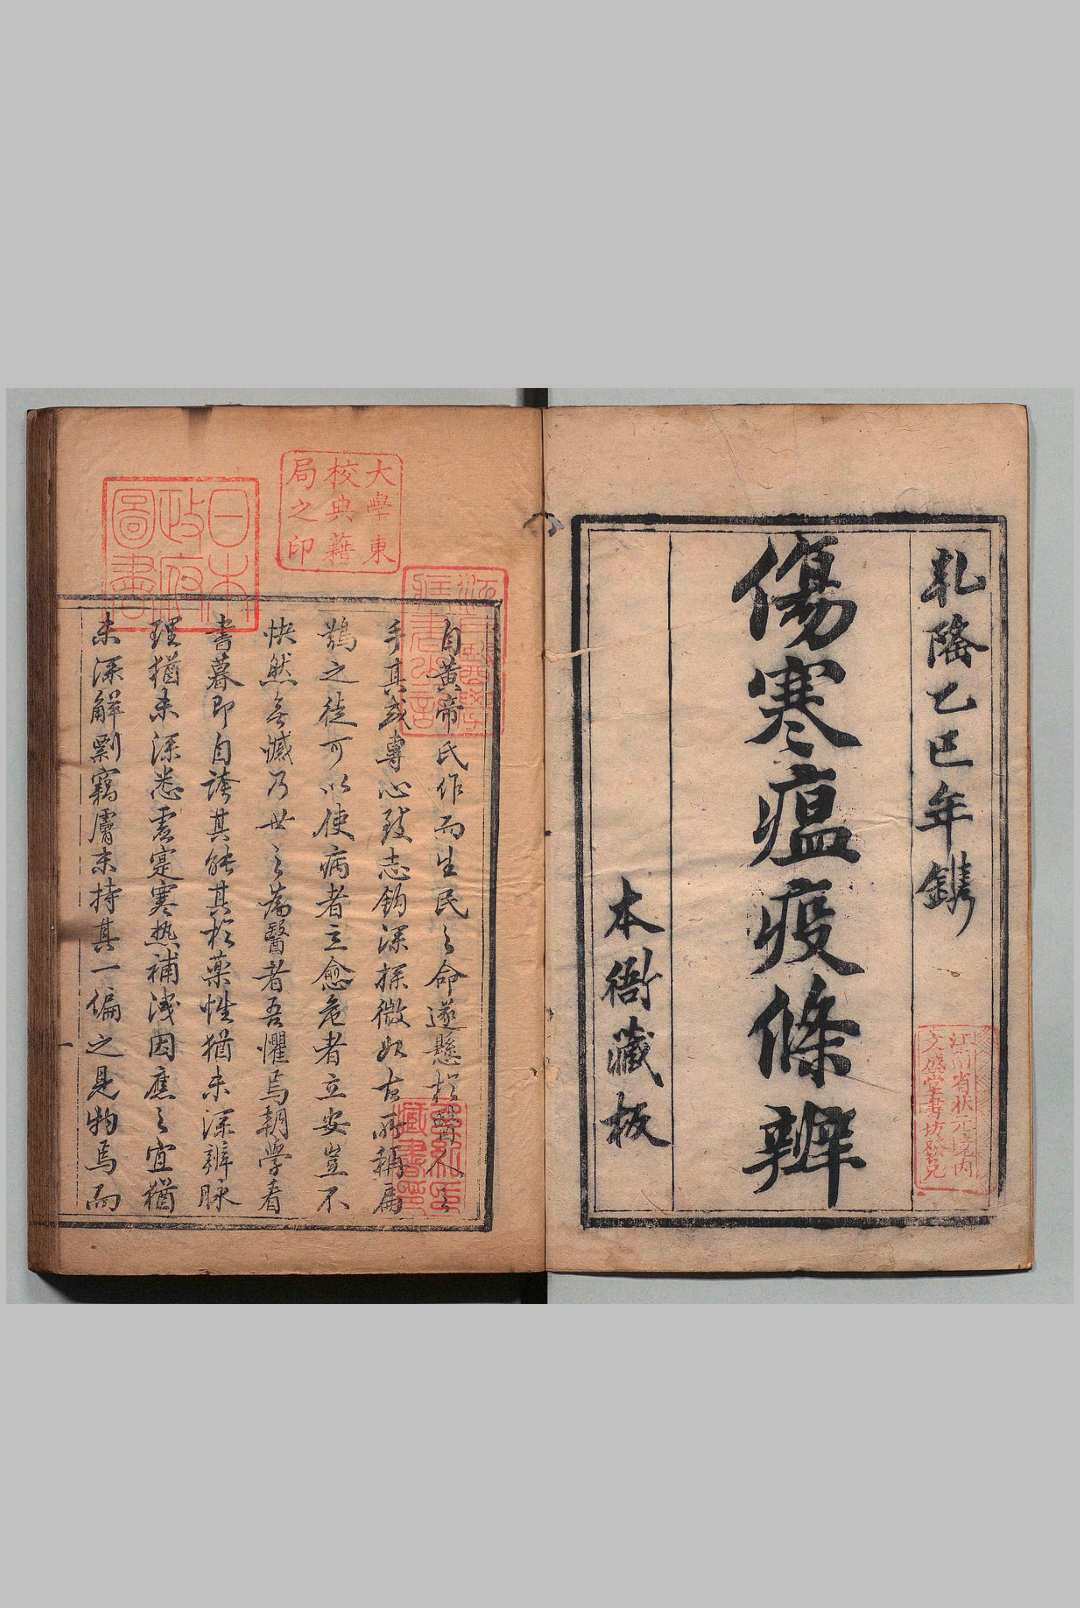 乾隆乙巳年鐫
傷寒瘟疫條辨
本衙藏板
江南省狀元境內
文盛堂書坊發兌
大學東
校典籍
局之印
日本
政府
圖書
自黃帝氏作而生民之命遂懸於醫人之
手其或專心致志鈎深探微如古所稱扁
鵲之徒可以使病者立愈危者立安豈不
快然無憾乃世之為醫者吾懼焉朝學看
書暮即自誇其能其於藥性猶未深辨脉
理猶未深悉虛寔寒熱補瀉因應之宜猶
未深解剽竊膚末持其一偏之見物焉而